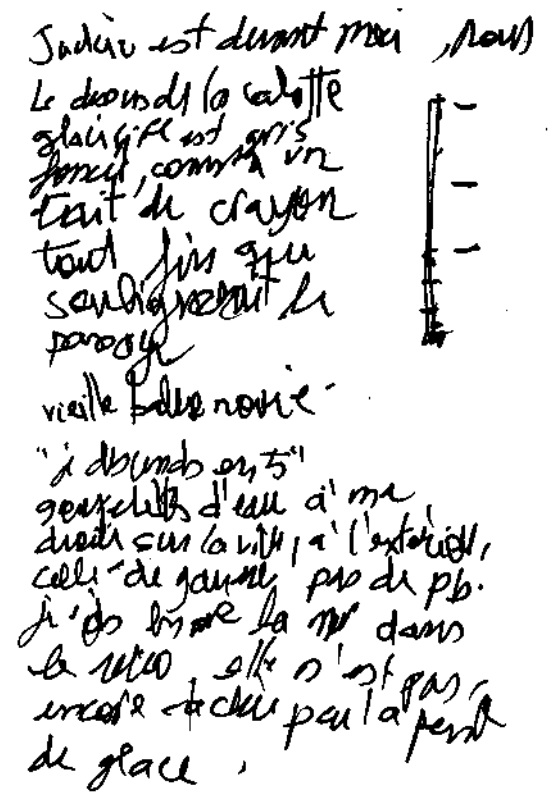 est devant moi, nous
Le dessous de la calotte
glacière est gris
foncé, comme un
trait de crayon
tout fin qui
soulignerait le
vieille baleine noire.
"je descends en 5"
gouttelettes d'eau à ma
droite sur la vitre, à l'extérieur,
celle de gauche, pas de pb.
la mer dans
le rétro, elle n'est pas
encore cachée par la
de glace.